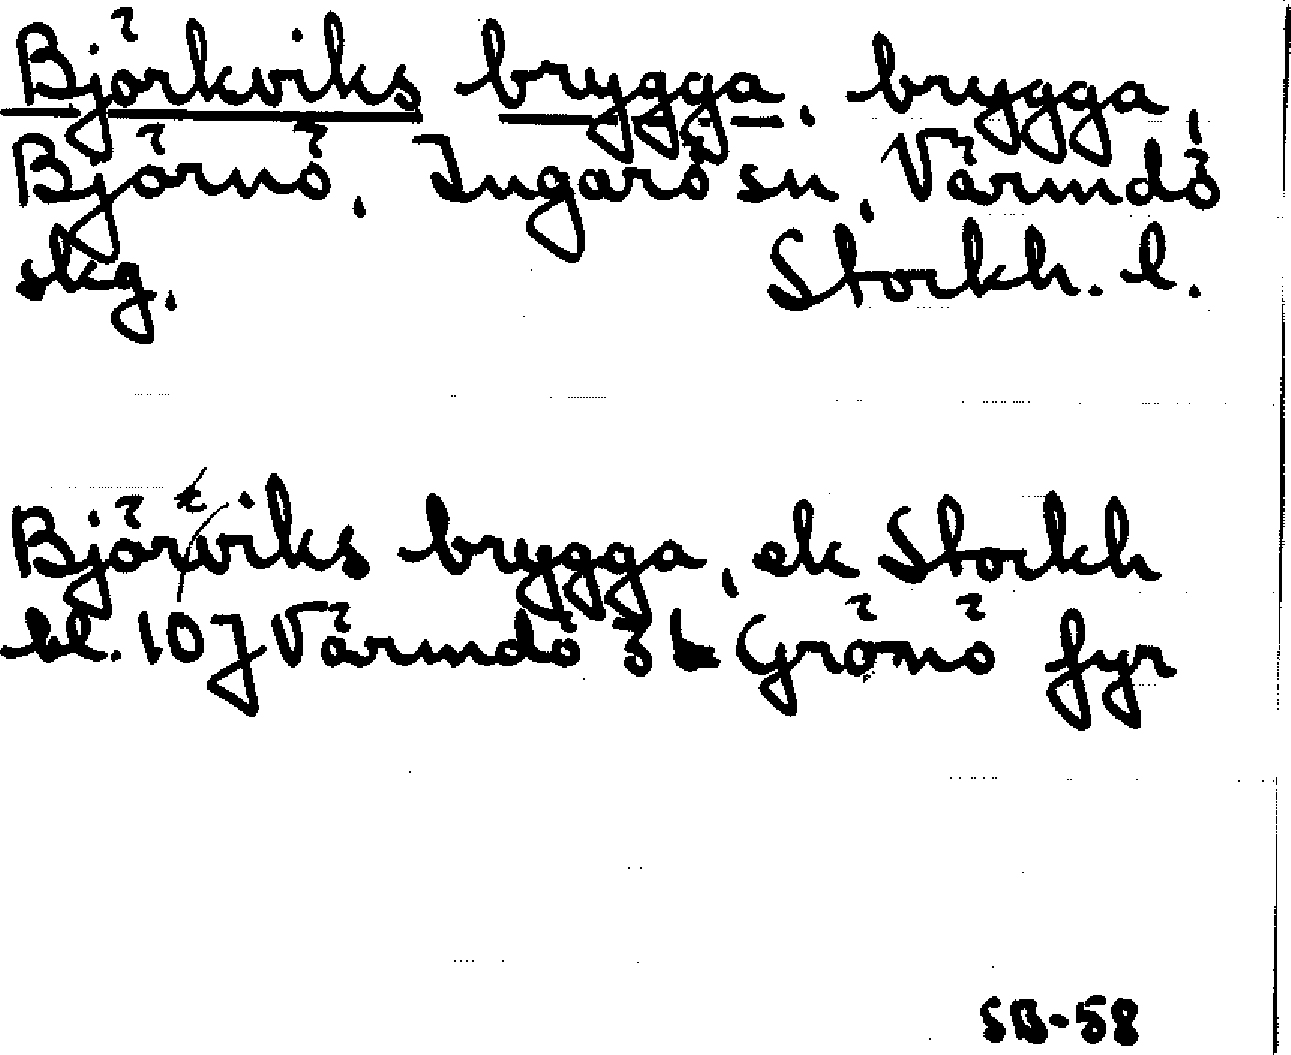 Björkviks brygga, brygga,
Björnö, Ingarö sn, Värmdö
skg. Stockh. l.
Björkviks brygga, ek Stockh
bl. 10J Värmdö 3b Grönö fyr
SB-58